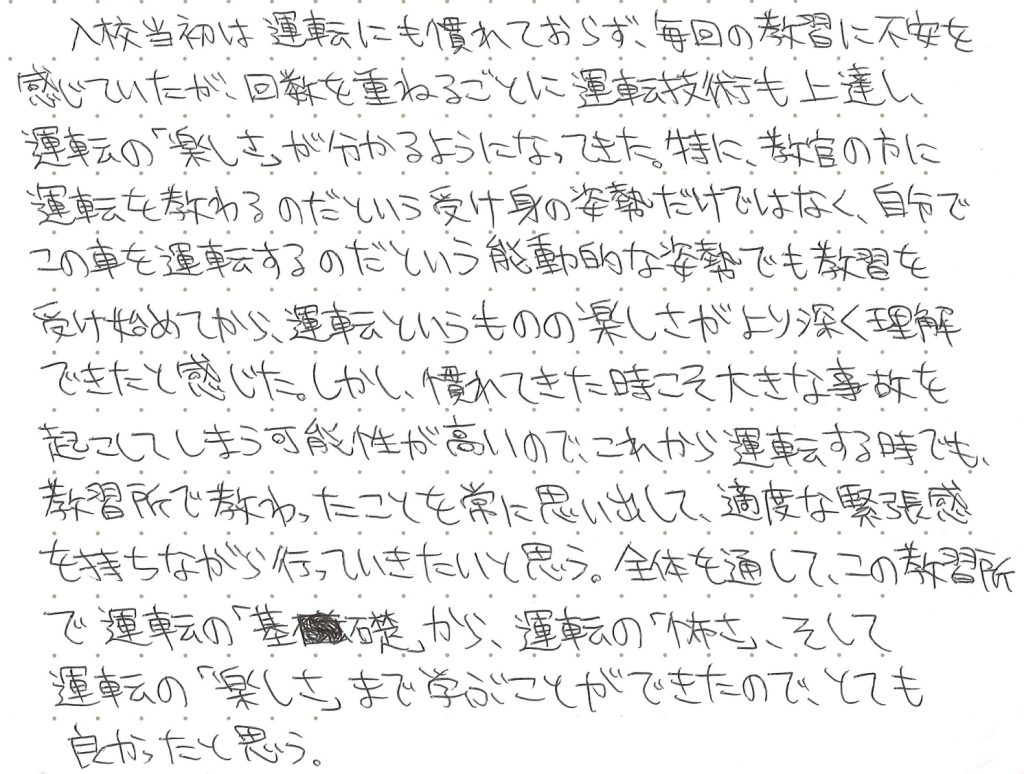 入校当初は運転にも慣れておらず、毎回の教習に不安を
感じていたが、回数を重ねるごとに運転技術も上達し、
運転の「楽しさ」が分かるようになってきた。特に、教官の方に
運転を教わるのだという受け身の姿勢だけではなく、自分で
この車を運転するのだという能動的な姿勢でも教習を
受け始めてから、運転というものの楽しさがより深く理解
できたと感じた。しかし、慣れてきた時こそ大きな事故を
起こしてしまう可能性が高いので、これから運転する時でも、
教習所で教わったことを常に思い出して、適度な緊張感
を持ちながら行っていきたいと思う。全体を通して、この教習所
で運転の「基礎」から、運転の「怖さ」、そして
運転の「楽しさ」まで学ぶことができたので、とても
良かったと思う。